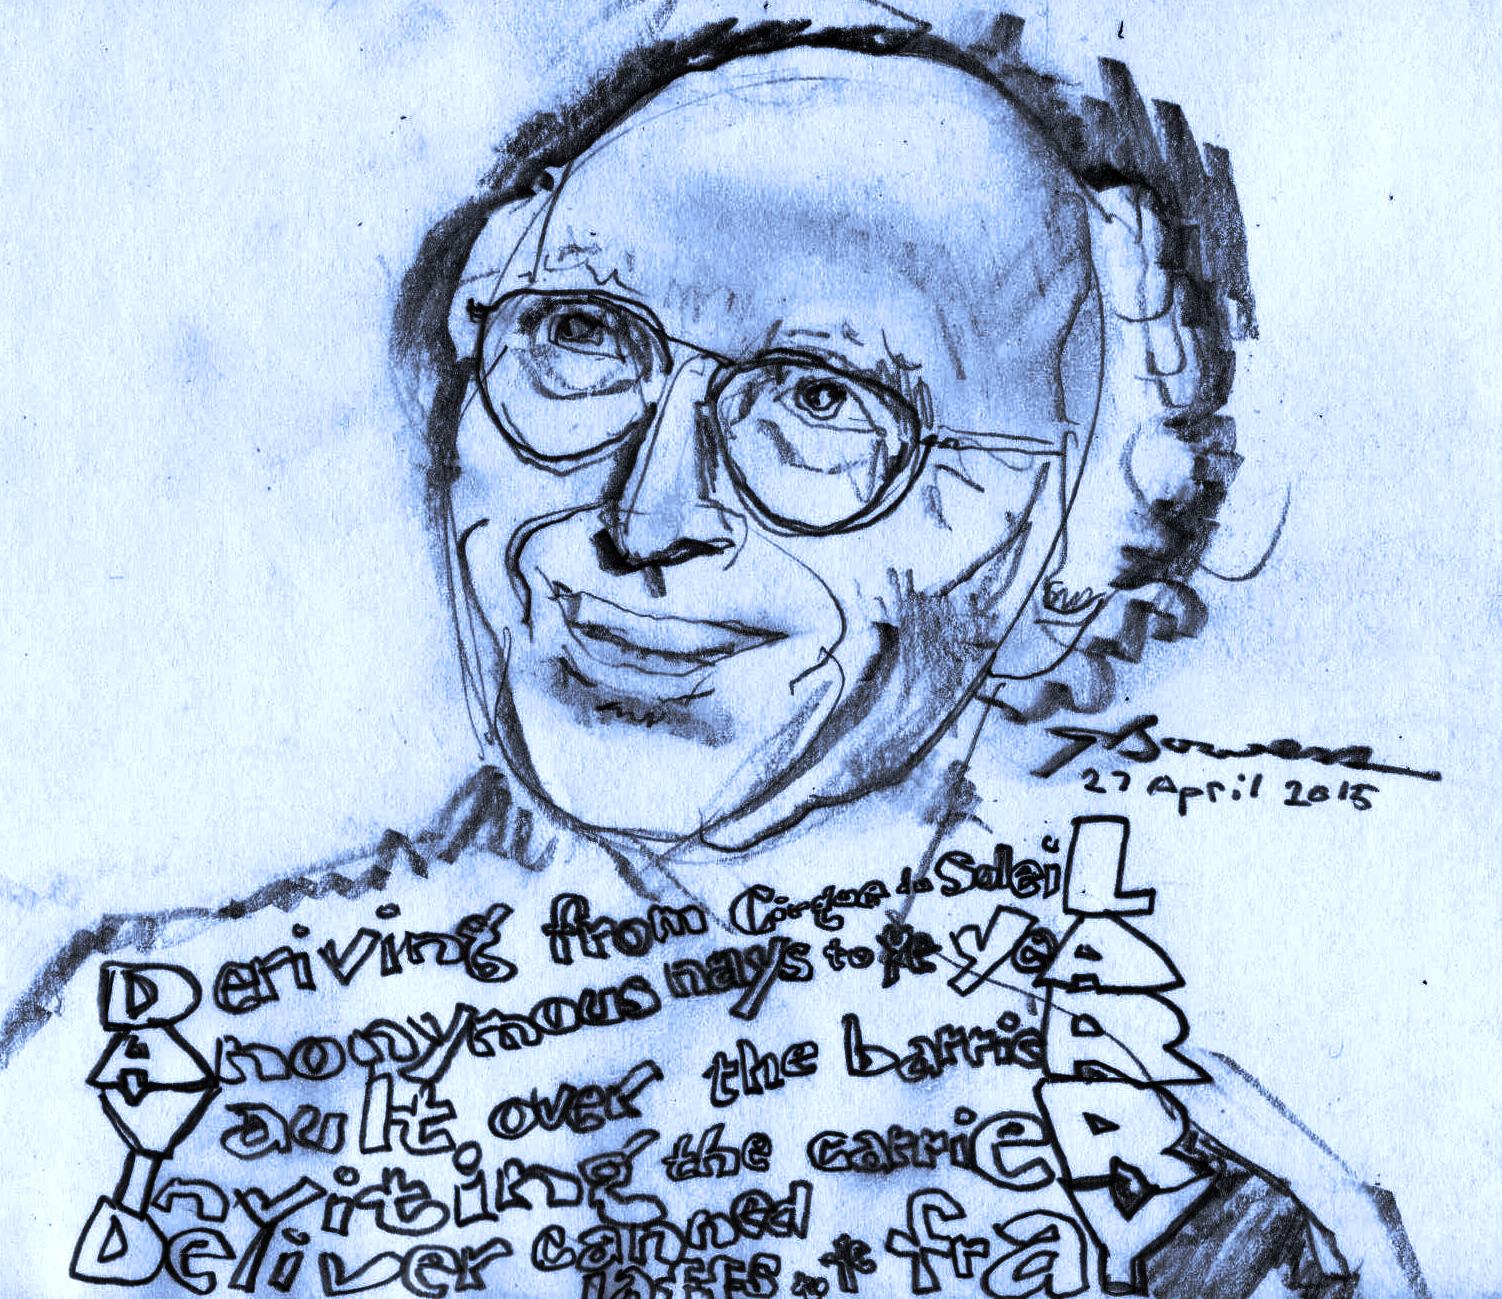 27 April 2015
Deriving from Cirque du SoleiL
Anonymous nays to the yeA
Vault over the barrieR
Inviting the carrieR
Deliver canned laffs to the fraY